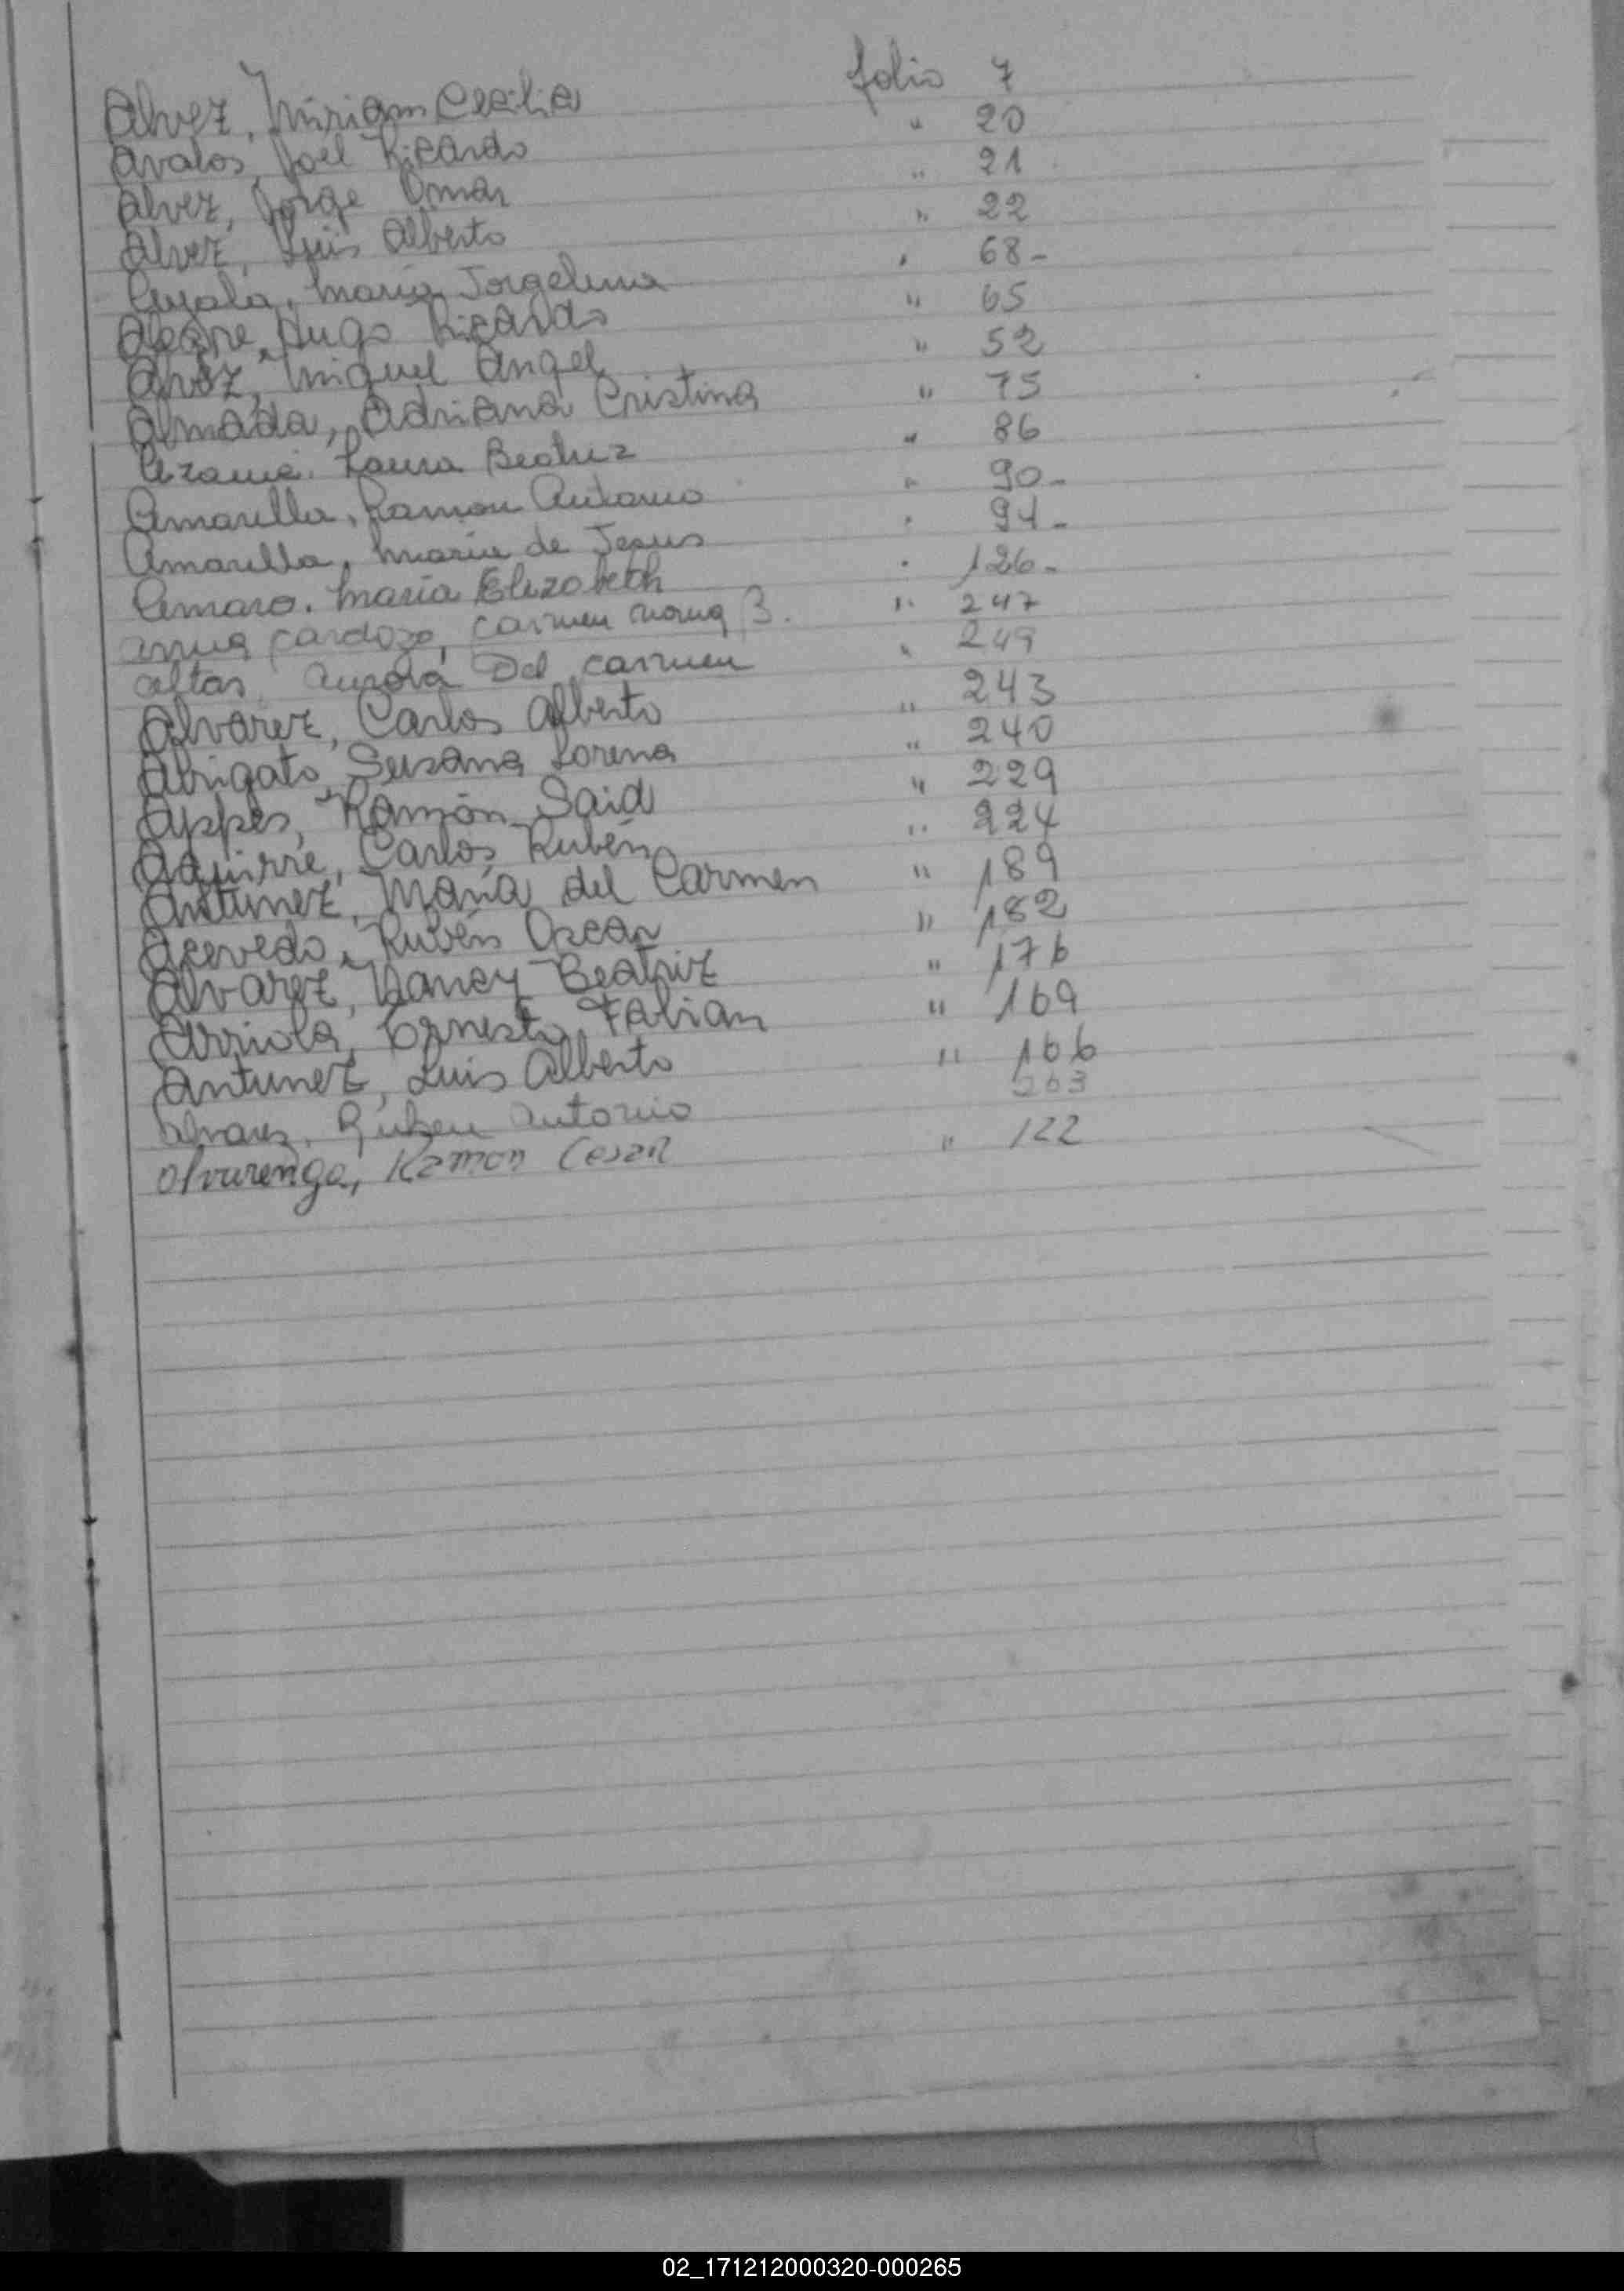 Alvez, Miriam Cecilia folio 7
Avalos, Joel Ricardo " 20
Alvez, Jorge Omar " 21
Alvez, Luis Alberto " 22
Ayala, Maria Jorgelina " 68-
Alegre, Hugo Ricardo " 65
Alvez, Miguel Angel " 52
Almada, Adriana Cristina " 75
Laura Beatriz " 86
Amarilla, Ramon Antonio " 90-
Amarilla, Maria de Jesus " 94-
Amaro. Maria Elizabeth " 126-
Cardozo, Carmen B. " 247
Del Carmen " 249
Alvarez, Carlos Alberto " 243
Abrigato, Susana Lorena " 240
Appes, Ramón Said " 229
Aguirre, Carlos Rubén " 224
Antunez, María del Carmen " 189
Acevedo, Rubén Oscar " 182
Alvarez, Nancy Beatriz " 176
Arriola, Ernesto Fabian " 169
Antunez, Luis Alberto " 166
Alvarez, Ruben Antonio 263
Alvarenga, Ramon Cesar " 122
02_171212000320-000265